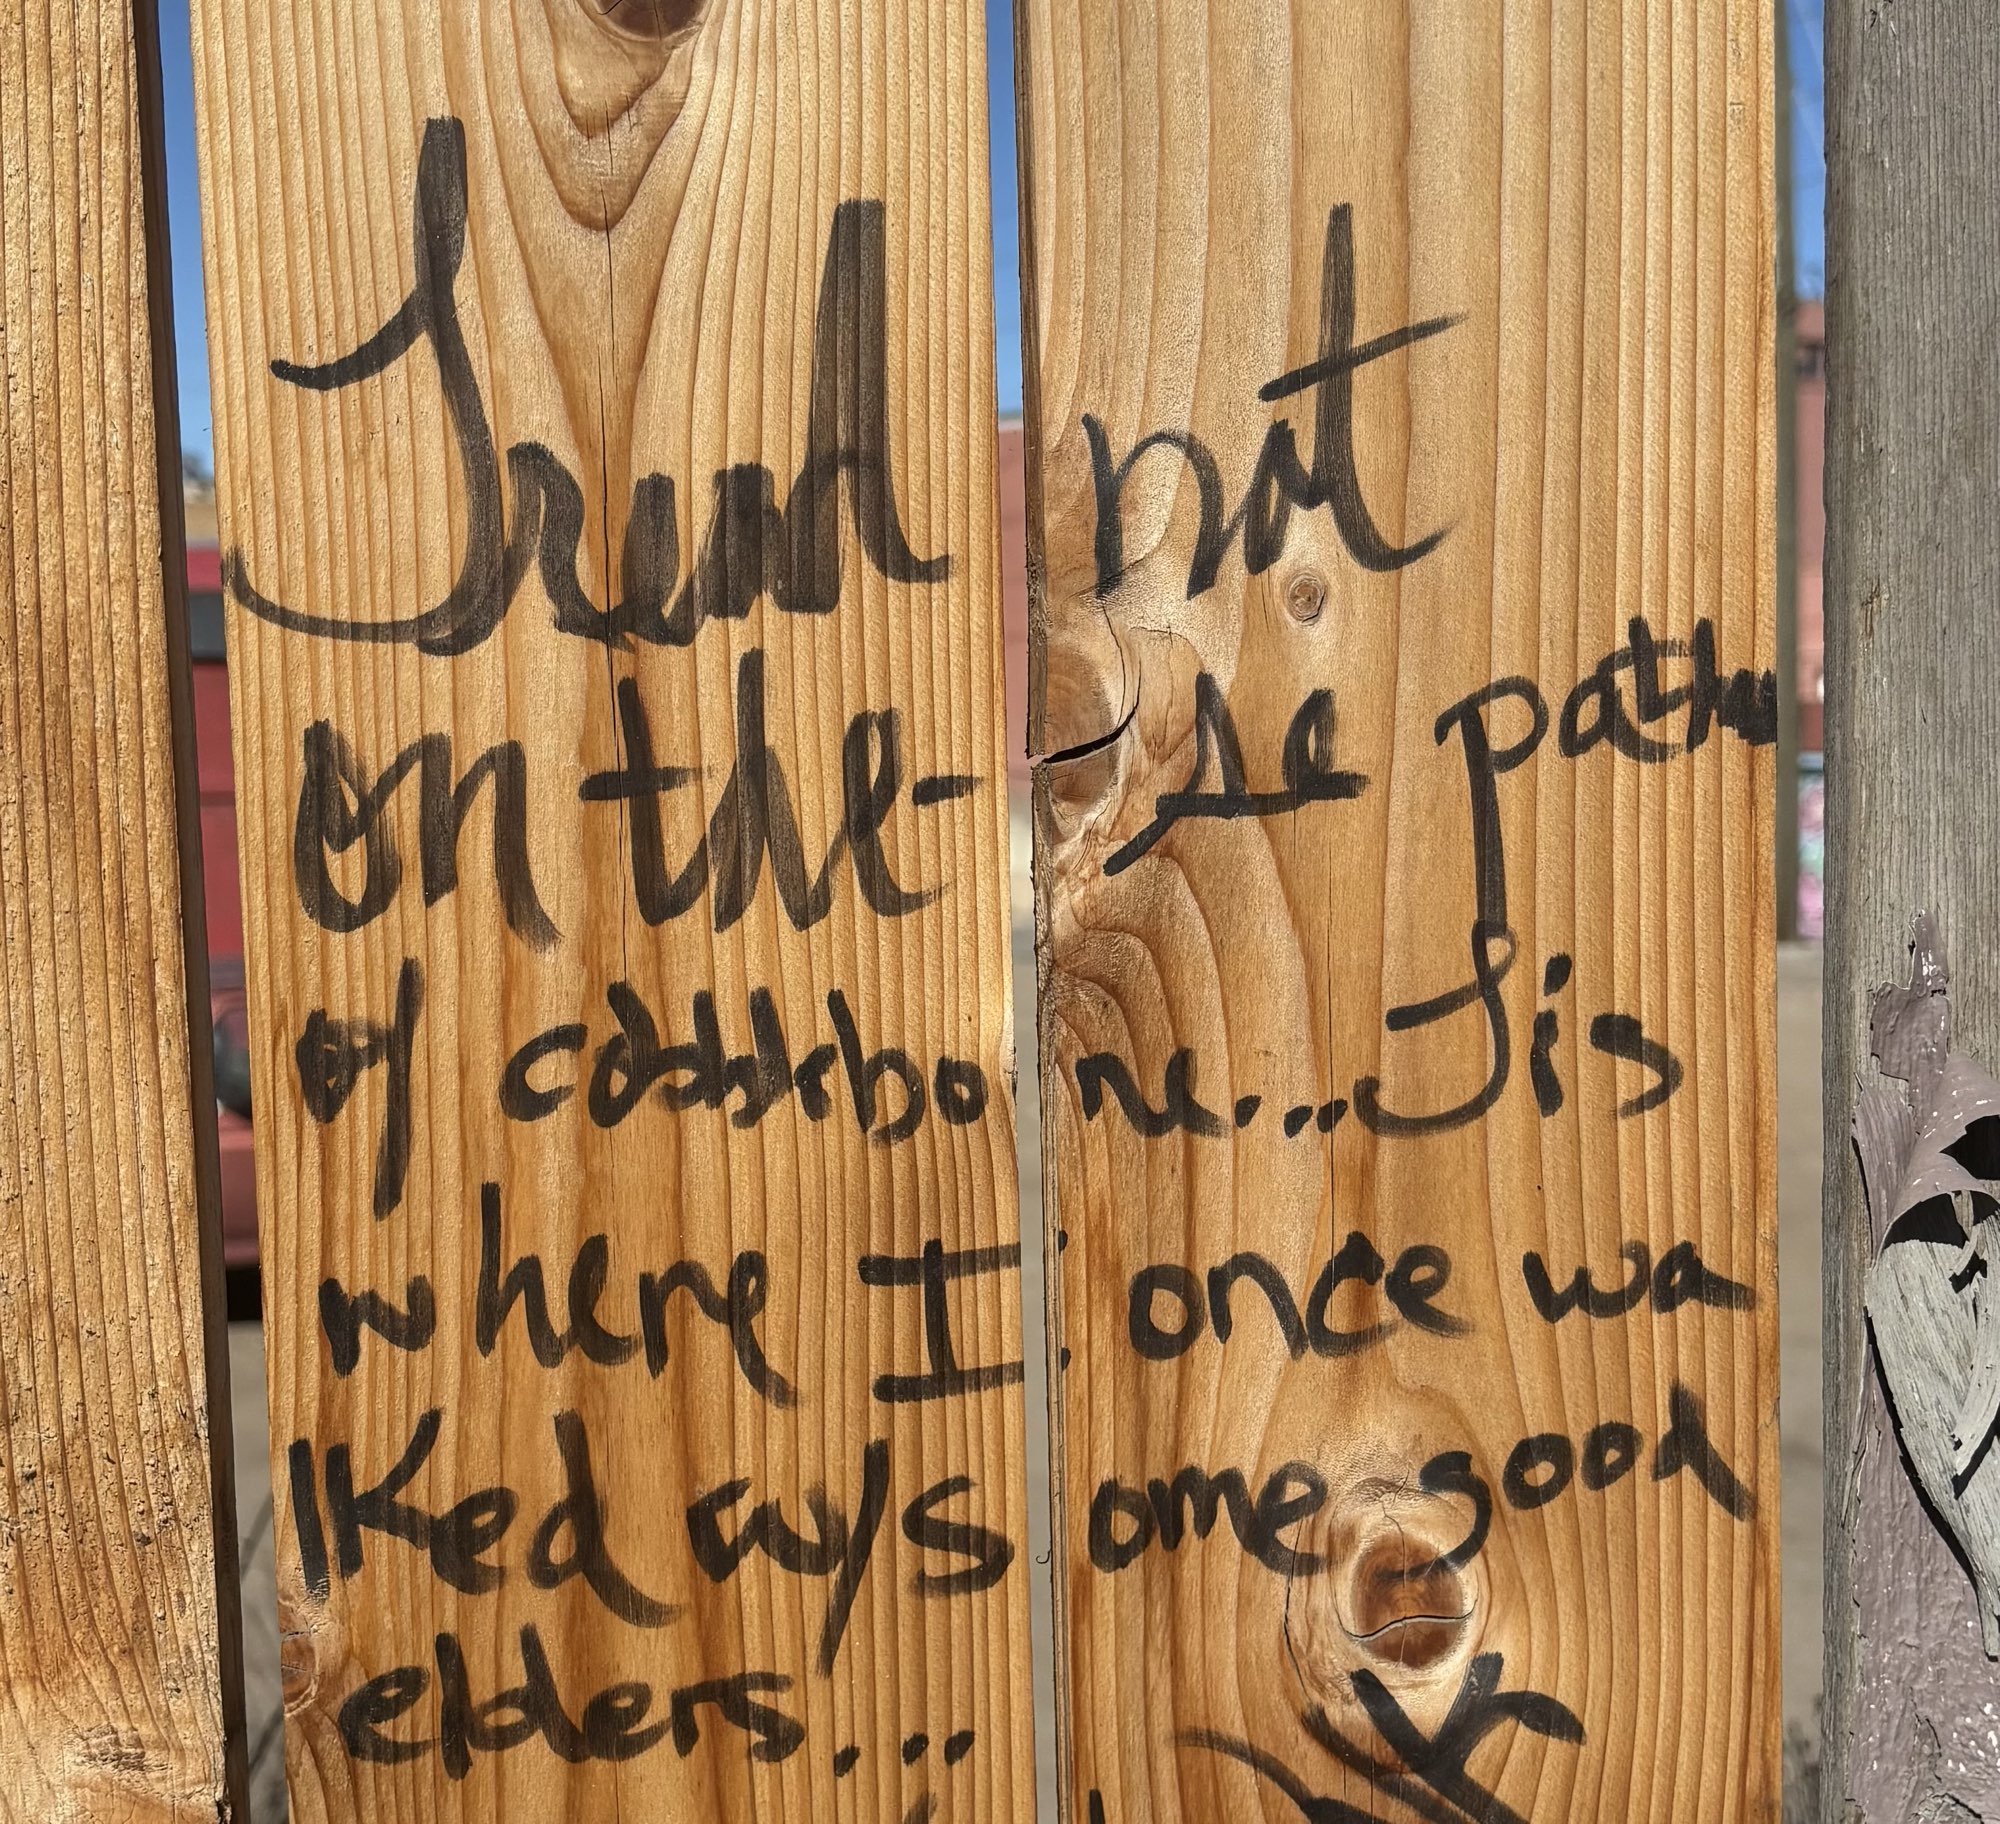 Tread not
on the-se paths
of cobblebone... Tis
where I once wa
lked ays ome good
elders...